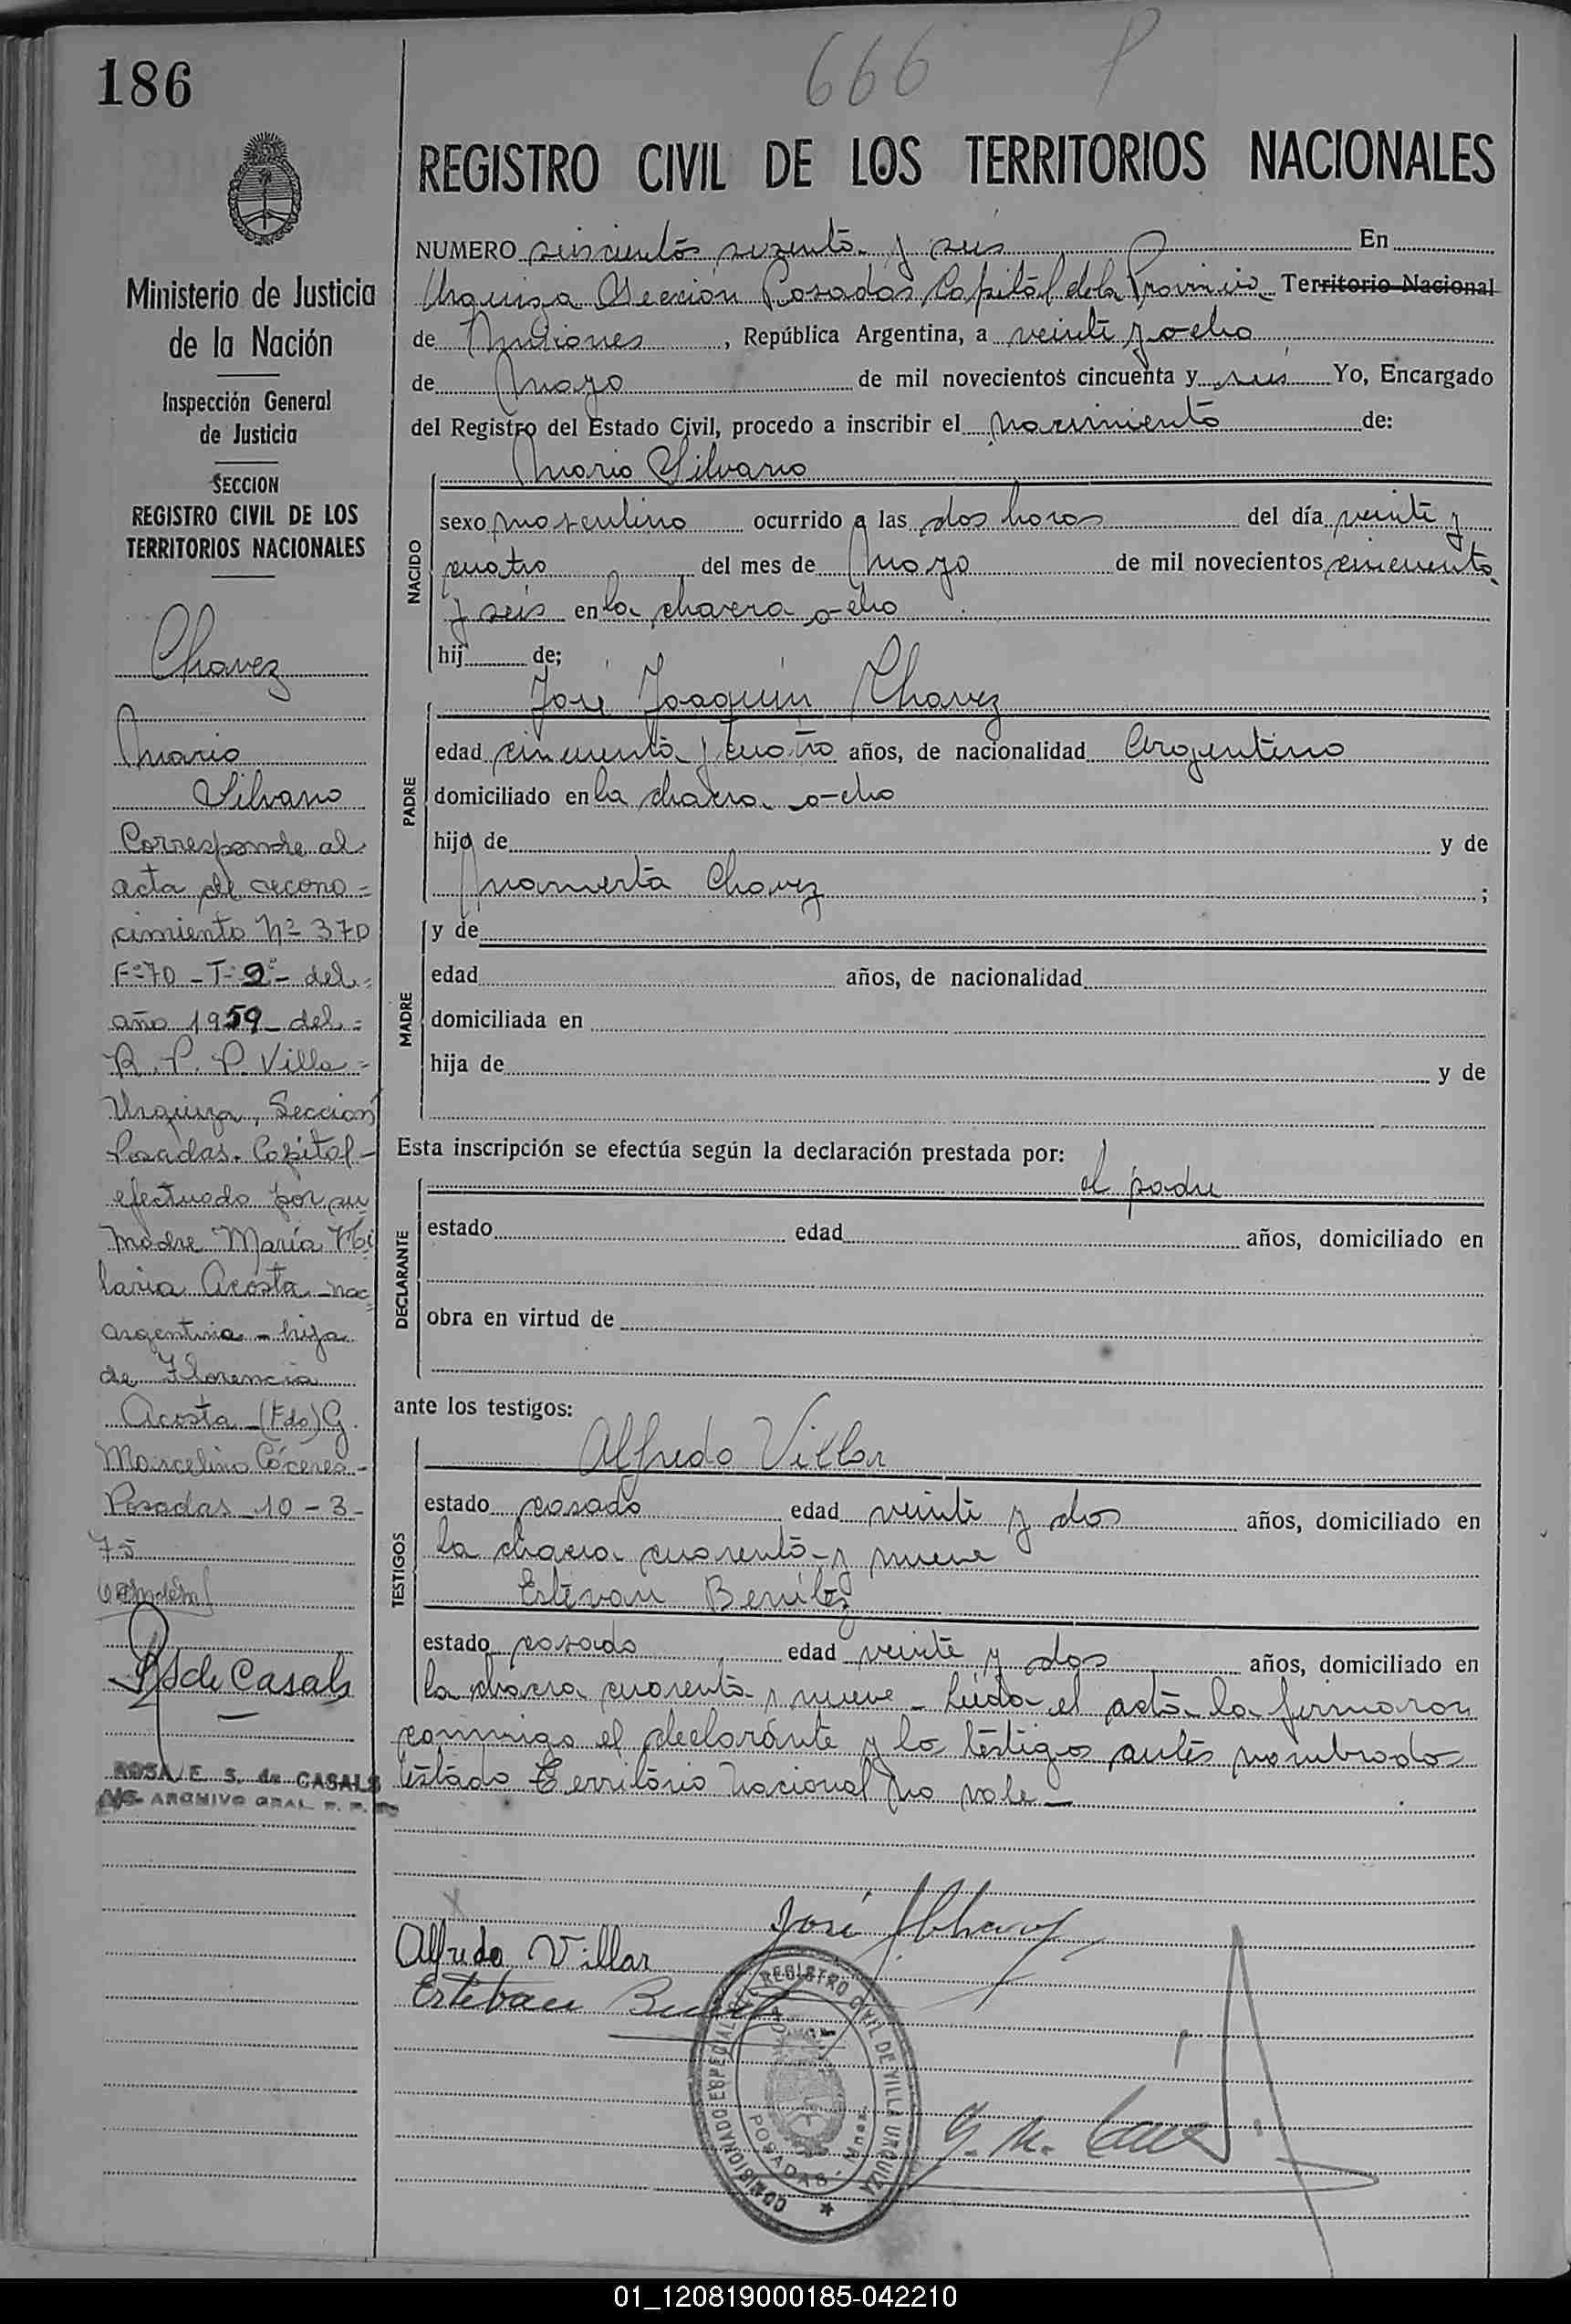 186
666 P
REGISTRO CIVIL DE LOS TERRITORIOS NACIONALES
Ministerio de Justicia
de la Nación
Inspección General
de Justicia
SECCION
REGISTRO CIVIL DE LOS
TERRITORIOS NACIONALES
Chavez
Mario
Silvano
Corresponde al
acta de recono=
cimiento Nº 370
Fº 70 - T- 2º- del=
año 1959 del=
R. P. P. Villa=
Urquiza, Sección
Posadas. Capital-
efectuado por su
madre María Hi
laria Acosta - nac
argentina - hija
de Florencia
Acosta - (Fdo) G.
Marcelino Cáceres-
Posadas 10-3-
75
S de Casals
ROSA E. S. de CASALS
ARCHIVO GRAL. P. P.
NUMERO seiscientos sesenta y seis En
Urquiza Sección Posadas Capital de la Provincia Territorio Nacional
de Misiones, República Argentina, a veinte y ocho
de Mayo de mil novecientos cincuenta y seis Yo, Encargado
del Registro del Estado Civil, procedo a inscribir el nacimiento de:
Mario Silvano
NACIDO
sexo masculino ocurrido a las dos horas del día veinte y
cuatro del mes de Mayo de mil novecientos cincuenta
y seis en la chacra ocho
hij de;
José Joaquin Chavez
PADRE
edad cincuenta y cuatro años, de nacionalidad Argentino
domiciliado en la chacra ocho
hijo de y de
Mamerta Chavez ;
MADRE
y de
edad años, de nacionalidad
domiciliada en
hija de y de
Esta inscripción se efectúa según la declaración prestada por:
el padre
DECLARANTE
estado edad años, domiciliado en
obra en virtud de
ante los testigos:
Alfredo Villar
TESTIGOS
estado casado edad veinte y dos años, domiciliado en
la chacra cuarenta y nueve
Estevan Benitez
estado casado edad veinte y dos años, domiciliado en
la chacra cuarenta y nueve - Leida el acta la firmaron
conmigo el declarante y lo testigos antes nombrado
testado Territorio Nacional no vale -
José J Chavez
Alfredo Villar
Esteban
COMISIONADO ESPECIAL DEL REGISTRO CIVIL DE VILLA URQUIZA
POSADAS
G. M.
01_120819000185-042210